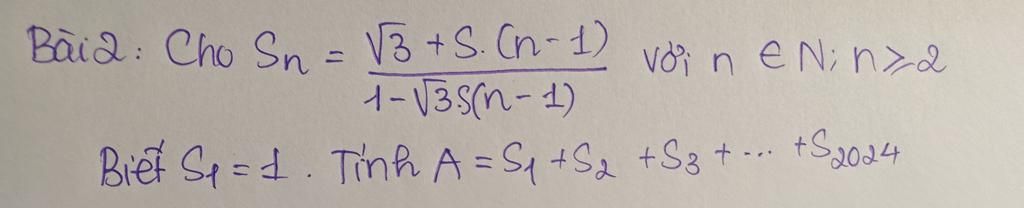 Bài 2: Cho Sn = (√3 + S.(n-1))/(1-√3S(n-1)) với n ∈ N; n ≥ 2
Biết S1 = 1. Tính A = S1 + S2 + S3 + ... + S2024